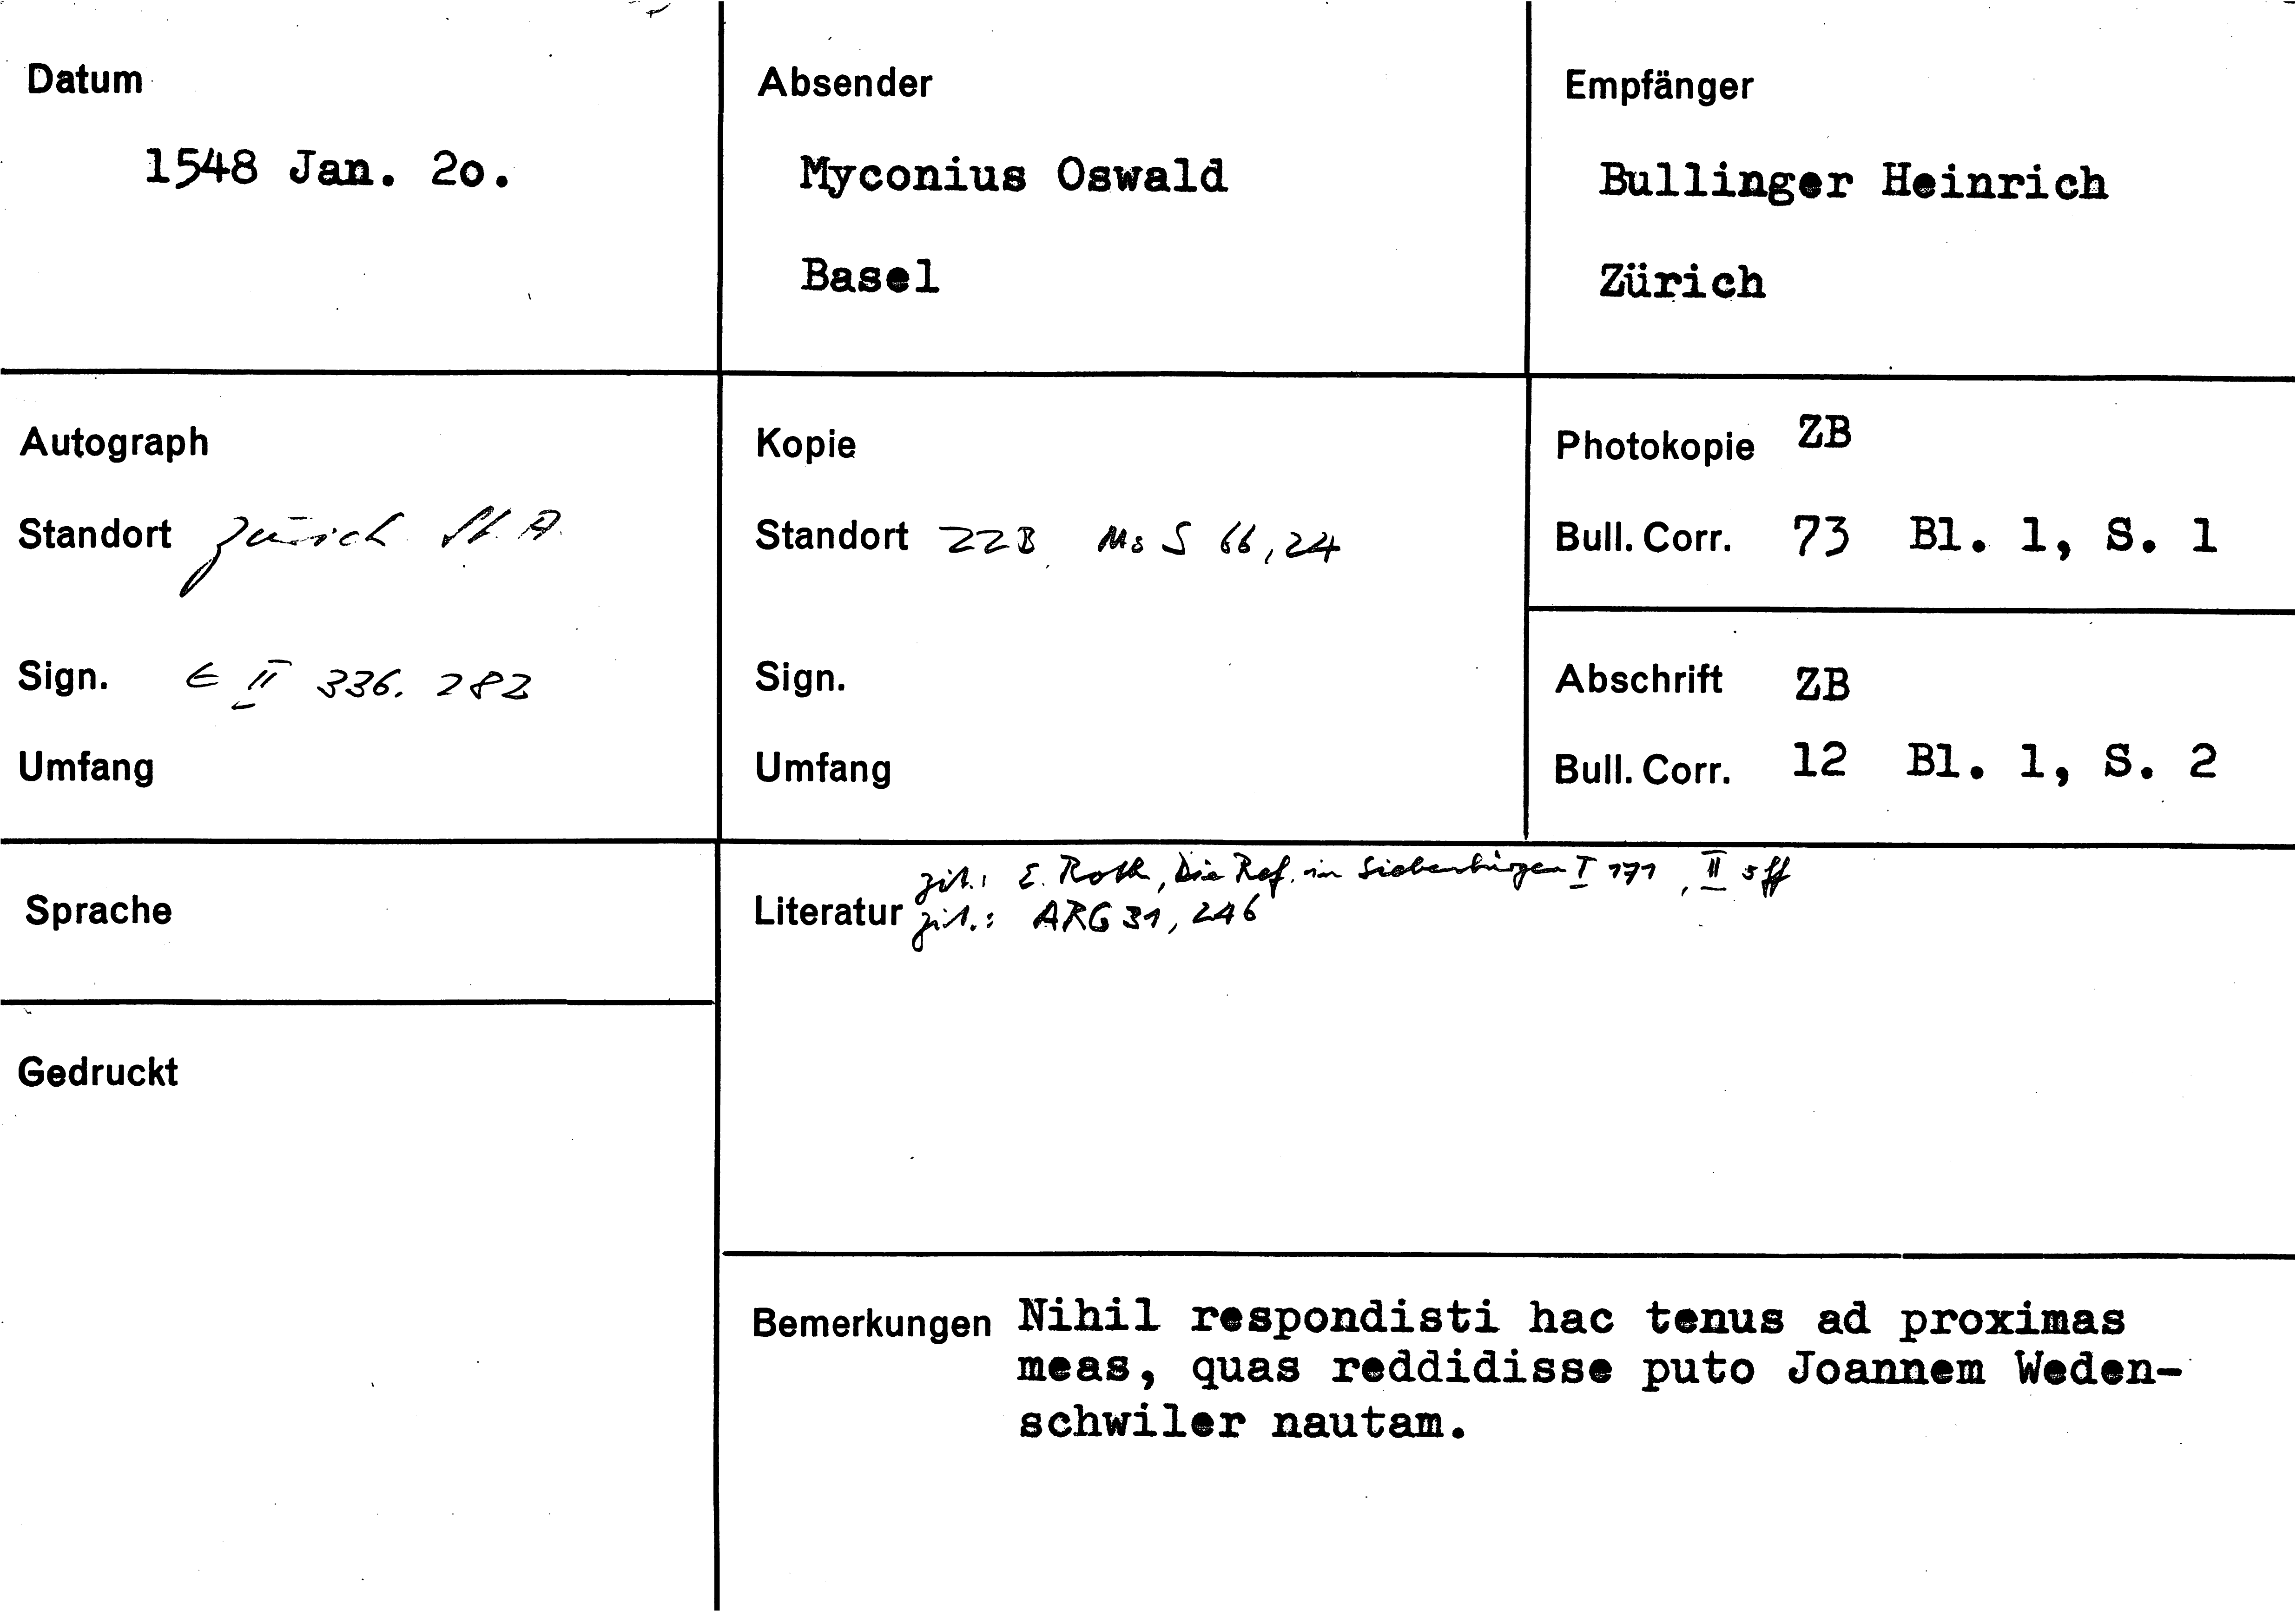 Datum
1548 Jan. 2o.
Absender
Myconius Oswald
Basel
Empfänger
Bullinger Heinrich
Zürich
Autograph
Standort Zürich St. A.
Sign. E II 336. 282
Umfang
Kopie
Standort ZZB Ms S 66, 24
Sign.
Umfang
Photokopie ZB
Bull. Corr. 73 Bl. 1, S. 1
Abschrift ZB
Bull. Corr. 12 Bl. 1, S. 2
Sprache
Gedruckt
zit.: E. Roth, Die Ref. in Siebenbürgen I 171, II 5 ff
Literatur zit.: ARG 31, 246
Bemerkungen Nihil respondisti hac tenus ad proximas
meas, quas reddidisse puto Joannem Weden-
schwiler nautam.